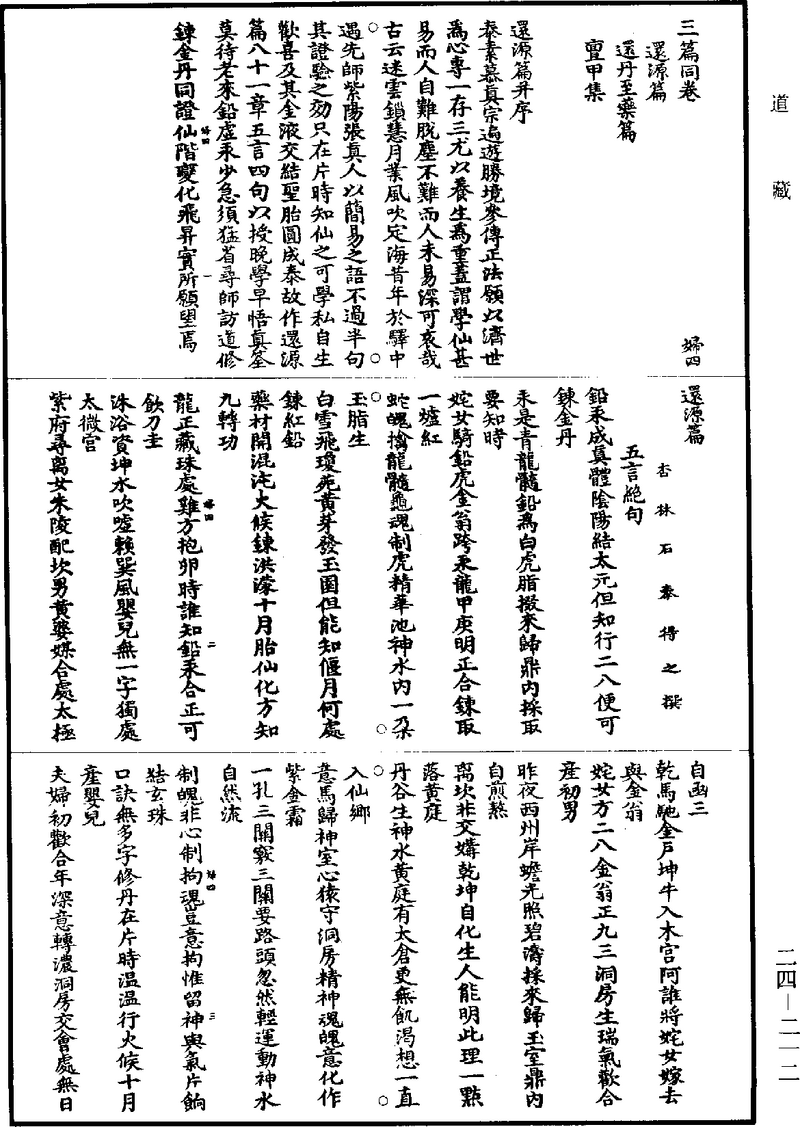 道藏
三篇同卷
還源篇
還丹至藥篇
亶甲集
婦四
還源篇并序
泰素慕真宗遍遊勝境參傳正法願以濟世
爲心專一存三尤以養生爲重蓋謂學仙甚
易而人自難脫塵不難而人未易深可哀哉
古云迷雲鎖慧月業風吹定海昔年於驛中
遇先師紫陽張真人以簡易之語不過半句
其證驗之効只在片時知仙之可學私自生
歡喜及其金液交結聖胎圓成泰故作還源
篇八十一章五言四句以授晚學早悟真筌
莫待老來鉛虛汞少急須猛省尋師訪道修
婦四
一
鍊金丹同證仙階變化飛昇實所願望焉
還源篇
杏林石泰得之撰
五言絕句
鉛汞成真體陰陽結太元但知行二八便可
鍊金丹
汞是青龍髓鉛爲白虎脂掇來歸鼎內採取
要知時
姹女騎鉛虎金翁跨汞龍甲庚明正合鍊取
一爐紅
蛇魄擒龍髓龜魂制虎精華池神水內一朶
玉脂生
白雪飛瓊苑黄芽發玉園但能知偃月何處
鍊紅鉛
藥材開混沌火候鍊洪濛十月胎仙化方知
九轉功
龍正藏珠處雞方抱卵時誰知鉛汞合正可
婦四
二
飲刀圭
沐浴資坤水吹噓賴巽風嬰兒無一字獨處
太微宮
紫府尋离女朱陵配坎男黄婆媒合處太極
自函三
乾馬馳金戶坤牛入木宮阿誰將姹女嫁去
與金翁
姹女方二八金翁正九三洞房生瑞氣歡合
產初男
昨夜西州岸蟾光照碧濤採來歸玉室鼎內
自煎熬
离坎非交媾乾坤自化生人能明此理一點
落黄庭
丹谷生神水黄庭有太倉更無飢渴想一直
入仙鄉
意馬歸神室心猿守洞房精神魂魄意化作
紫金霜
一孔三關竅三關要路頭忽然輕運動神水
自然流
制魄非心制拘魂豈意拘惟留神與氣片餉
婦四
三
結玄珠
口訣無多字修丹在片時温温行火候十月
產嬰兒
夫婦初歡合年深意轉濃洞房交會處無日
二四—二一二